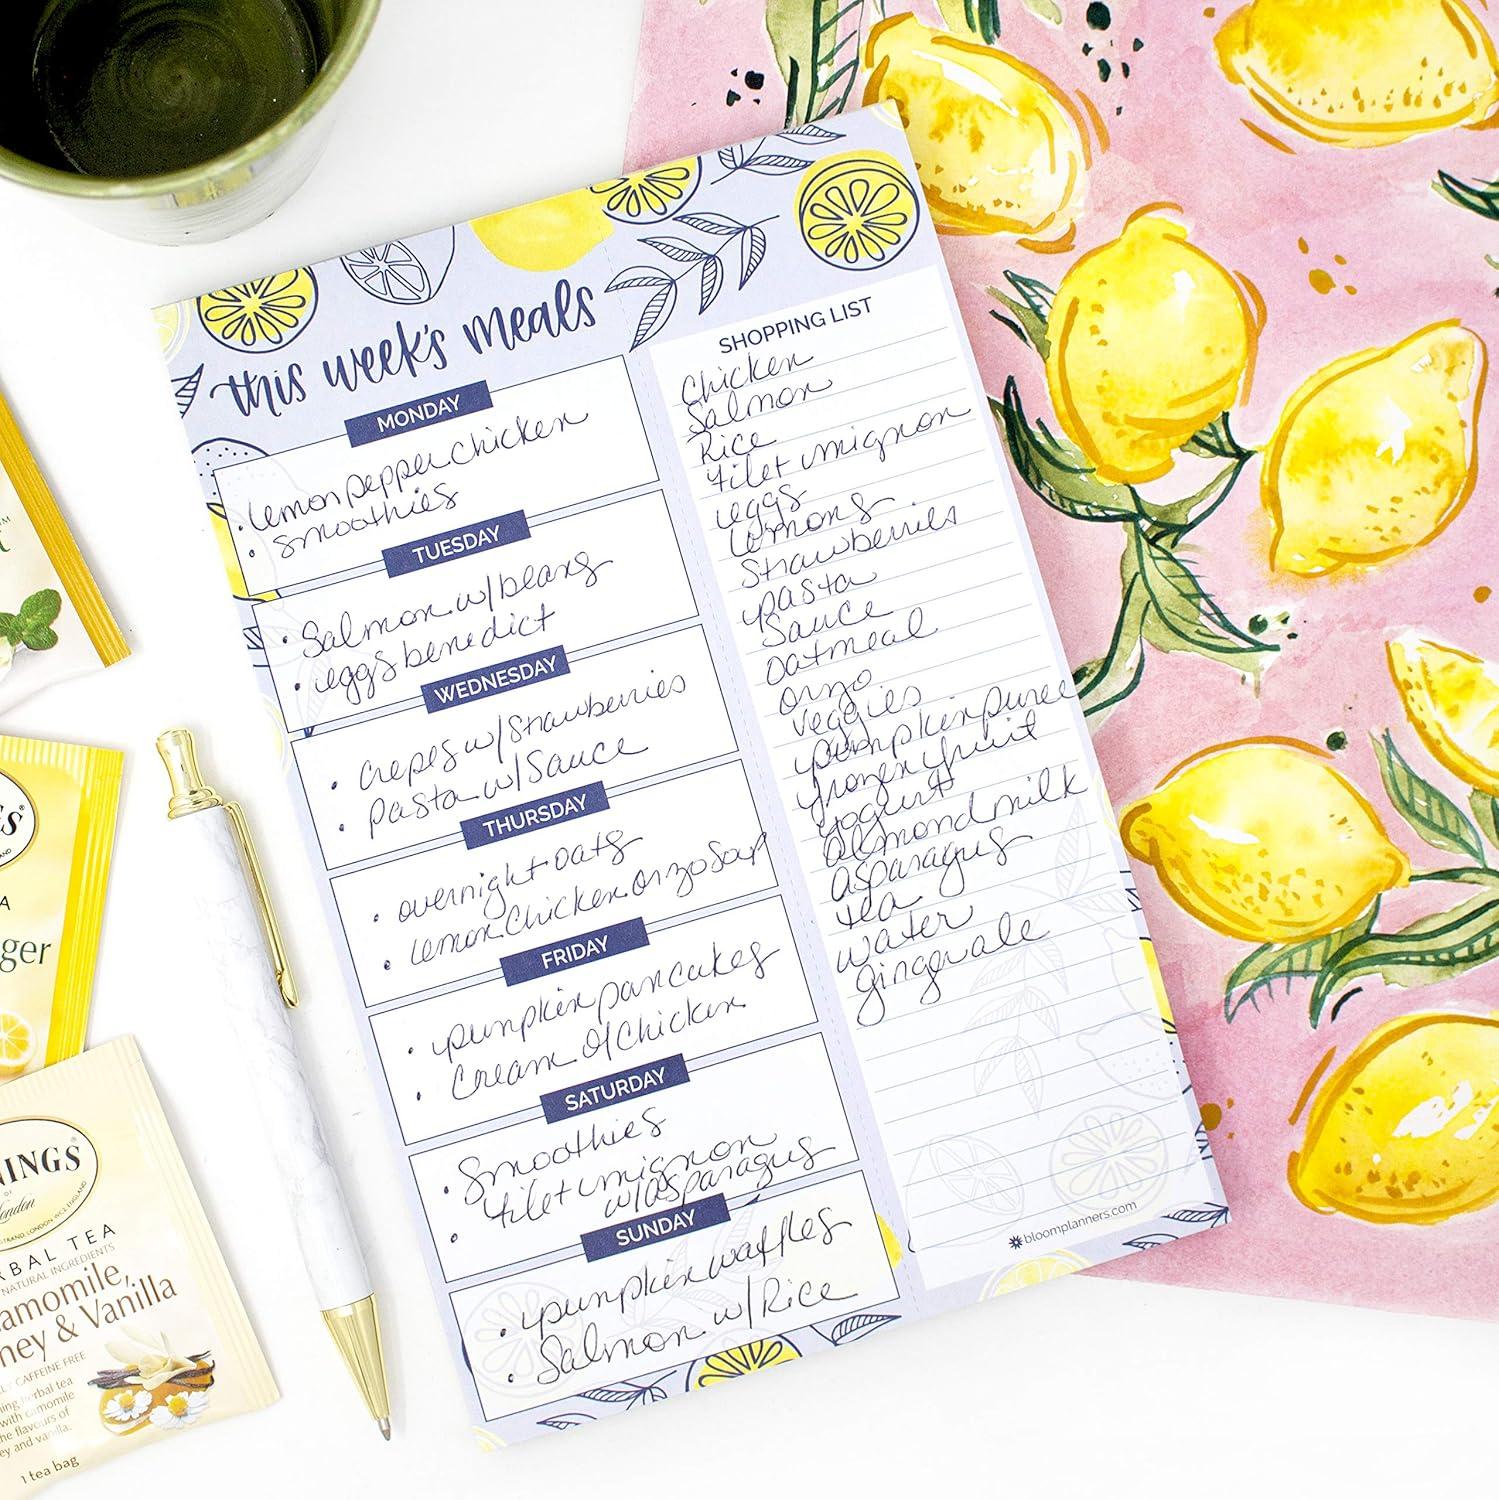 this week's meals
MONDAY
• lemon pepper chicken
• smoothies
TUESDAY
• Salmon w/beans
• eggs benedict
WEDNESDAY
• crepes w/Strawberries
• pasta w/Sauce
THURSDAY
• overnight oats
• lemon chicken orzo soup
FRIDAY
• pumpkin pancakes
• cream of chicken
SATURDAY
• Smoothies
• filet mignon
w/asparagus
SUNDAY
• pumpkin waffles
• Salmon w/Rice
SHOPPING LIST
Chicken
Salmon
Rice
filet mignon
eggs
lemons
Strawberries
pasta
Sauce
oatmeal
orzo
veggies
pumpkin puree
frozen fruit
yogurt
almond milk
asparagus
tea
water
gingerale
bloomplanners.com
ger
NINGS
OF
London
STRAND, LONDON, WC2, ENGLAND
RBAL TEA
NATURAL INGREDIENTS
amomile,
ney & Vanilla
CAFFEINE FREE
herbal tea
with camomile
the flavours of
ey and vanilla.
1 tea bag